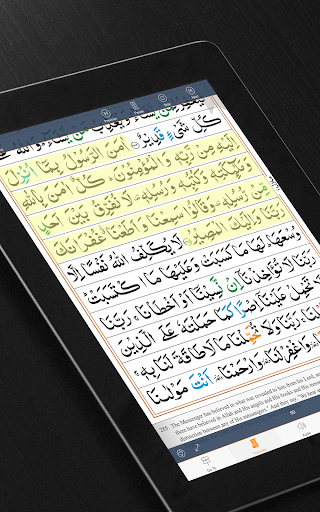 كُلِّ شَىْءٍ قَدِيْرٌ اٰمَنَ الرَّسُوْلُ بِمَآ اُنْزِلَ
اِلَيْهِ مِنْ رَّبِّهٖ وَالْمُؤْمِنُوْنَ كُلٌّ اٰمَنَ بِاللّٰهِ
وَمَلٰٓئِكَتِهٖ وَكُتُبِهٖ وَرُسُلِهٖ لَا نُفَرِّقُ بَيْنَ اَحَدٍ
مِّنْ رُّسُلِهٖ وَقَالُوْا سَمِعْنَا وَاَطَعْنَا غُفْرَانَكَ
رَبَّنَا وَاِلَيْكَ الْمَصِيْرُ لَا يُكَلِّفُ اللّٰهُ نَفْسًا اِلَّا
وُسْعَهَا لَهَا مَا كَسَبَتْ وَعَلَيْهَا مَا اكْتَسَبَتْ
رَبَّنَا لَا تُؤَاخِذْنَآ اِنْ نَّسِيْنَآ اَوْ اَخْطَاْنَا رَبَّنَا
تَحْمِلْ عَلَيْنَآ اِصْرًا كَمَا حَمَلْتَهٗ عَلَى الَّذِيْنَ
رَبَّنَا وَلَا تُحَمِّلْنَا مَا لَا طَاقَةَ لَنَا بِهٖ
وَاغْفِرْ لَنَا وَارْحَمْنَا اَنْتَ مَوْلٰىنَا
285. The Messenger has believed in what was revealed to him from his Lord, and
have believed in Allah and His angels and His books and His
distinction between any of His messengers." And they say, "We hear